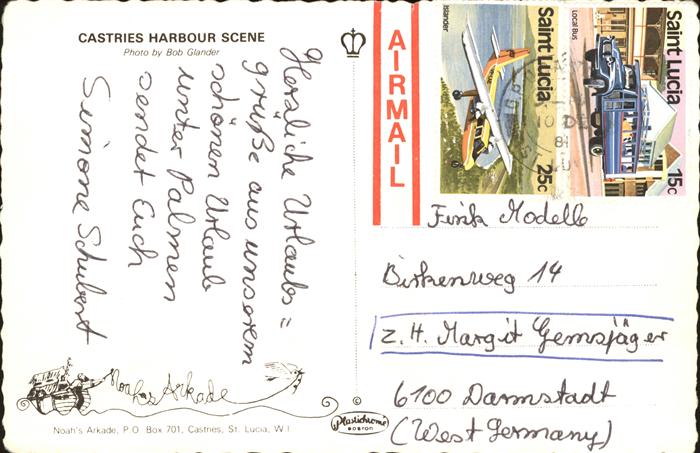 CASTRIES HARBOUR SCENE
Photo by Bob Glander
Herzliche Urlaubs=
grüße aus unserem
schönen Urlaub
unter Palmen
sendet Euch
Simone Schubert
Noahs Arkade
Noah's Arkade, P.O. Box 701, Castries, St. Lucia, W.I.
©
Plastichrome
BOSTON
AIRMAIL
Islander
Saint Lucia
25c
Local Bus
Saint Lucia
15c
10 DE
81
Fink Modelle
Birkenweg 14
z. H. Margit Gemsjäger
6100 Darmstadt
(West Germany)